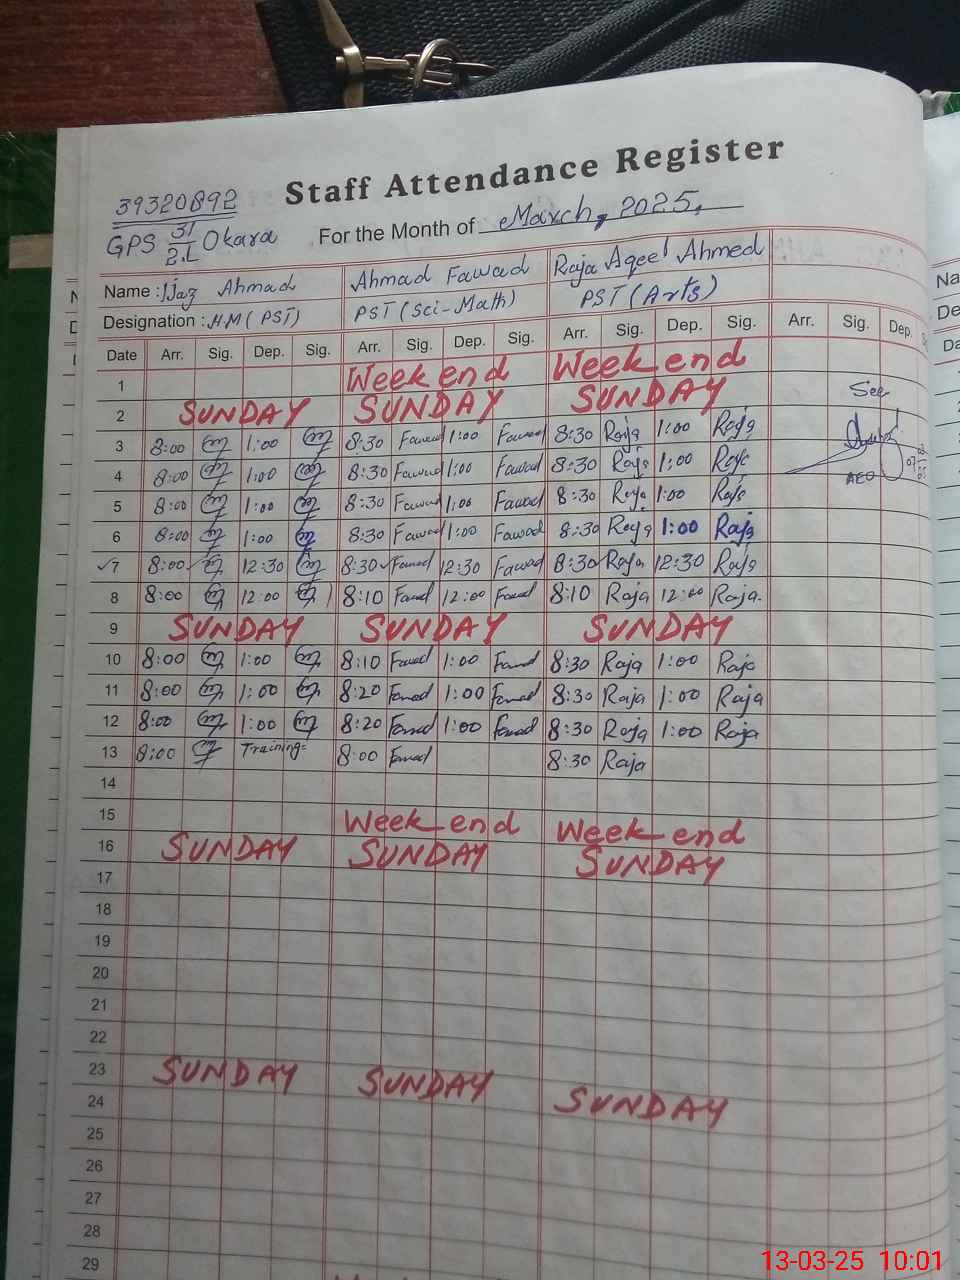 39320892
Staff Attendance Register
GPS 31/2.L Okara
For the Month of March, 2025.
Name : Ijaz Ahmad Ahmad Fawad Raja Aqeel Ahmed
Designation : HM (PST) PST (Sci-Math) PST (Arts)
Date Arr. Sig. Dep. Sig. Arr. Sig. Dep. Sig. Arr. Sig. Dep. Sig. Arr. Sig. Dep.
1 Week end Week end
2 SUNDAY SUNDAY SUNDAY See
3 8:00 1:00 8:30 Fawad 1:00 Fawad 8:30 Raja 1:00 Raja
4 8:00 1:00 8:30 Fawad 1:00 Fawad 8:30 Raja 1:00 Raja AEO
5 8:00 1:00 8:30 Fawad 1:00 Fawad 8:30 Raja 1:00 Raja
6 8:00 1:00 8:30 Fawad 1:00 Fawad 8:30 Raja 1:00 Raja
7 8:00 12:30 8:30 Fawad 12:30 Fawad 8:30 Raja 12:30 Raja
8 8:00 12:00 8:10 Fawad 12:00 Fawad 8:10 Raja 12:00 Raja.
9 SUNDAY SUNDAY SUNDAY
10 8:00 1:00 8:10 Fawad 1:00 Fawad 8:30 Raja 1:00 Raja
11 8:00 1:00 8:20 Fawad 1:00 Fawad 8:30 Raja 1:00 Raja
12 8:00 1:00 8:20 Fawad 1:00 Fawad 8:30 Raja 1:00 Raja
13 8:00 Training 8:00 Fawad 8:30 Raja
14
15 Week end Week end
16 SUNDAY SUNDAY SUNDAY
17
18
19
20
21
22
23 SUNDAY SUNDAY
24 SUNDAY
25
26
27
28
29
Na
De
Da
13-03-25 10:01